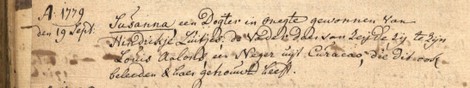 A. 1779
den 19 Sept.
Susanna een Dogter in onegte gewonnen van
Hindrikje Luitjes, de Vader daar van zeijde zij, te zijn
Louis Aalons, een Neger uijt Curacao, die dit ook
beleeden & haer getrouwt heeft.